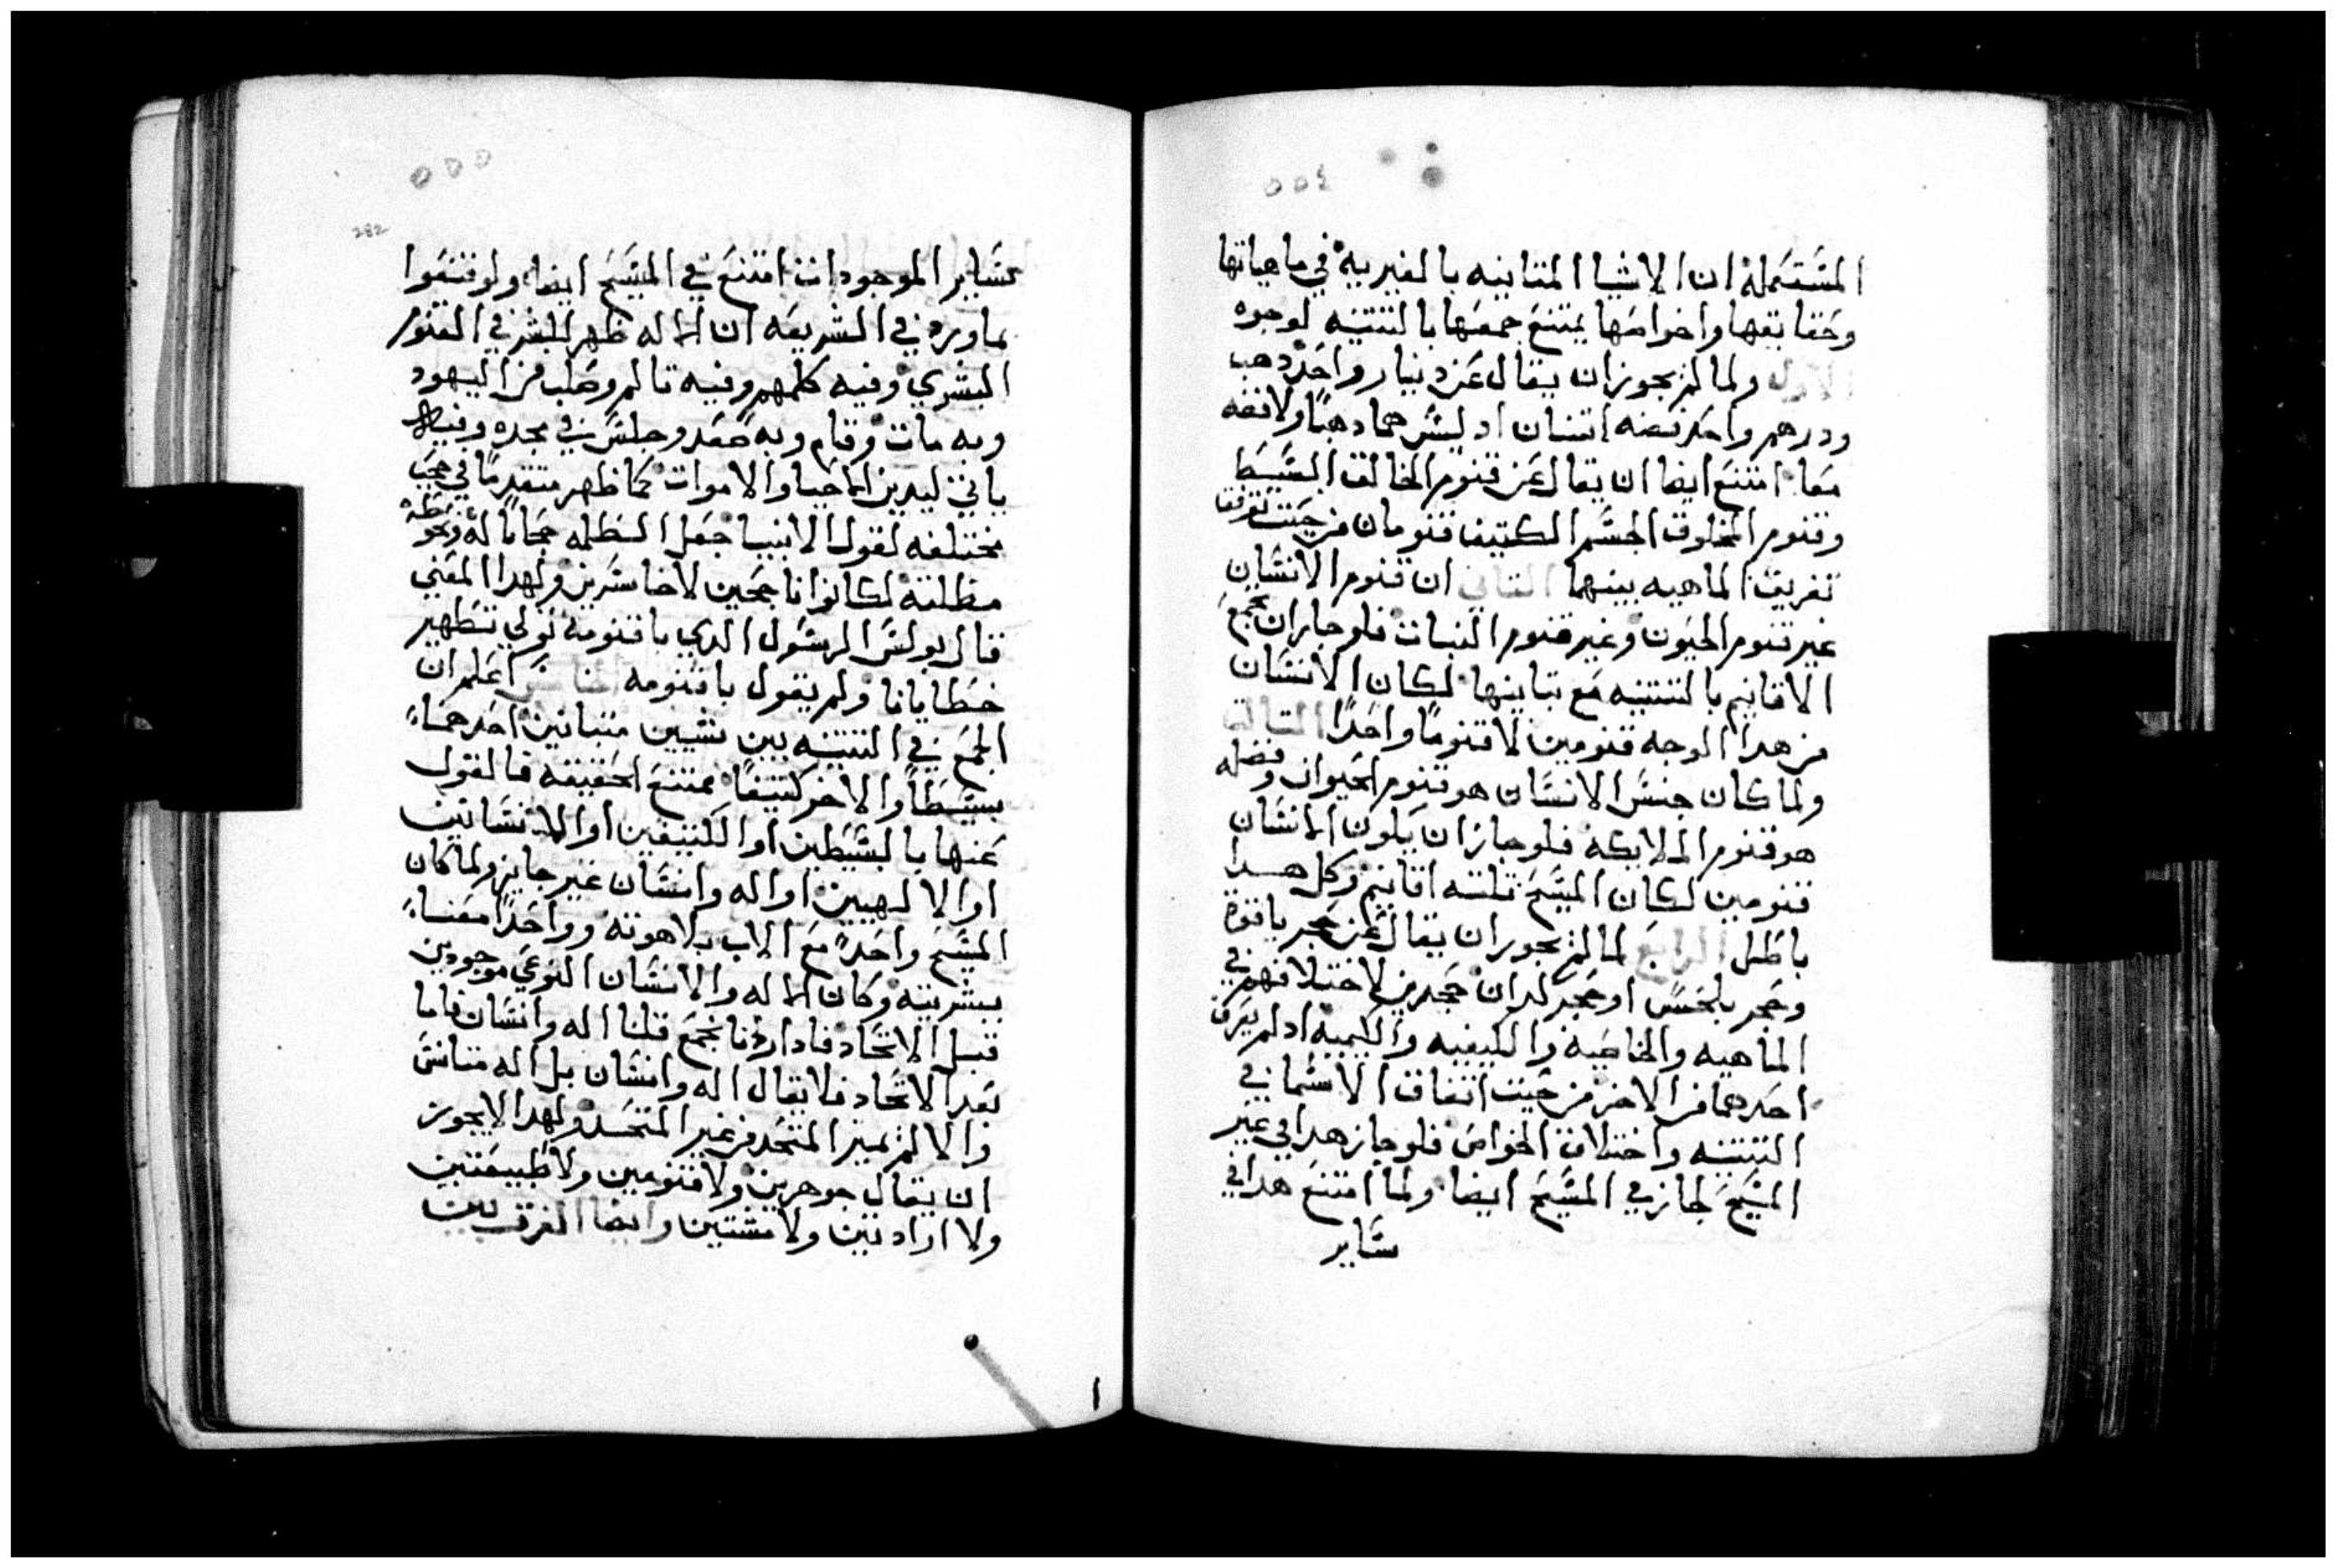 ٥٥٤
المستعمله ان الاشيا المتباينه بالغيرية في ماهياتها
وحقايقها واخواصها يمتنع جمعها بالتتنيه لوجوه
الاول ولما لم يجوز ان يقال عن دينار واحد دهب
ودرهم واحد فضه اتنان اد ليس هما دهبا ولا فضه
معا امتنع ايضا ان يقال عن قنوم الخالق البسيط
وقنوم المخلوق الجسم الكتيف قنومان من حيت
تفريق الماهيه بينهما التاني ان قنوم الانسان
غير قنوم الحيون وغير قنوم النبات فلو جاز ان تجمع
الاقانيم بالتتنيه مع تباينها لكان الانسان
من هدا الوجه قنومين لا قنوما واحدا التالت
ولما كان جنس الانسان هو قنوم الحيوان وفصله
هو قنوم الملايكه فلو جاز ان يكون الانسان
قنومين لكان المسيح تلته اقانيم وكل هدا
باطل الرابع لما لم يجوز ان يقال عن حجر ياقوة
وحجر بلخش او حجر لدان حجرين لاختلافهم في
الماهيه والخاصيه والكيفيه والكميه اد لم يعرف
احدهما من الاخر من حيت اتفاق الاسما في
التتنيه واختلاف الخواص فلو جاز هدا في غير
المسيح لجاز في المسيح ايضا ولما امتنع هدا في
ساير
٥٥٥
282
ساير الموجودات امتنع في المسيح ايضا ولو قنعوا
بما ورد في الشريعه ان الاله ظهر للبشر في القنوم
البشري وفيه كلمهم وفيه تالم وصلب من اليهود
وبه مات وقام وبه صعد وجلس في مجده وفيه
ياتي ليدين الاحيا والاموات كما ظهر متقدما في حجب
مختلفه لقول الانبيا جعل الظلمه حجابا له
مظلته لكانوا ناجحين لا خاسرين ولهدا المعني
قال بولس الرسول الدي باقنومه تولي تطهير
خطايانا ولم يقول باقنوميه الخامس اعلم ان
الجمع في التتنيه بين شيين متباتين احدهما
بسيطا والاخر كتيفا ممتنع الحقيقه فالقول
عنها بالبسيطين او الكتيفين او الانسانين
او الالهيين او اله وانسان غير جايز ولما كان
المسيح واحدا مع الاب بلاهوته وواحدا معنا
ببشريته وكان الاله والانسان النوعي موجودين
قبل الاتحاد فادا اردنا نجمع قلنا اله وانسان فاما
بعد الاتحاد فلا يقال اله وانسان بل اله متانس
والا لم نميز المتحد من غير المتحد ولهدا لا يجوز
ان يقال جوهرين ولا قنومين ولا طبيعتين
ولا ارادتين ولا مشتين وايضا الفرق بين